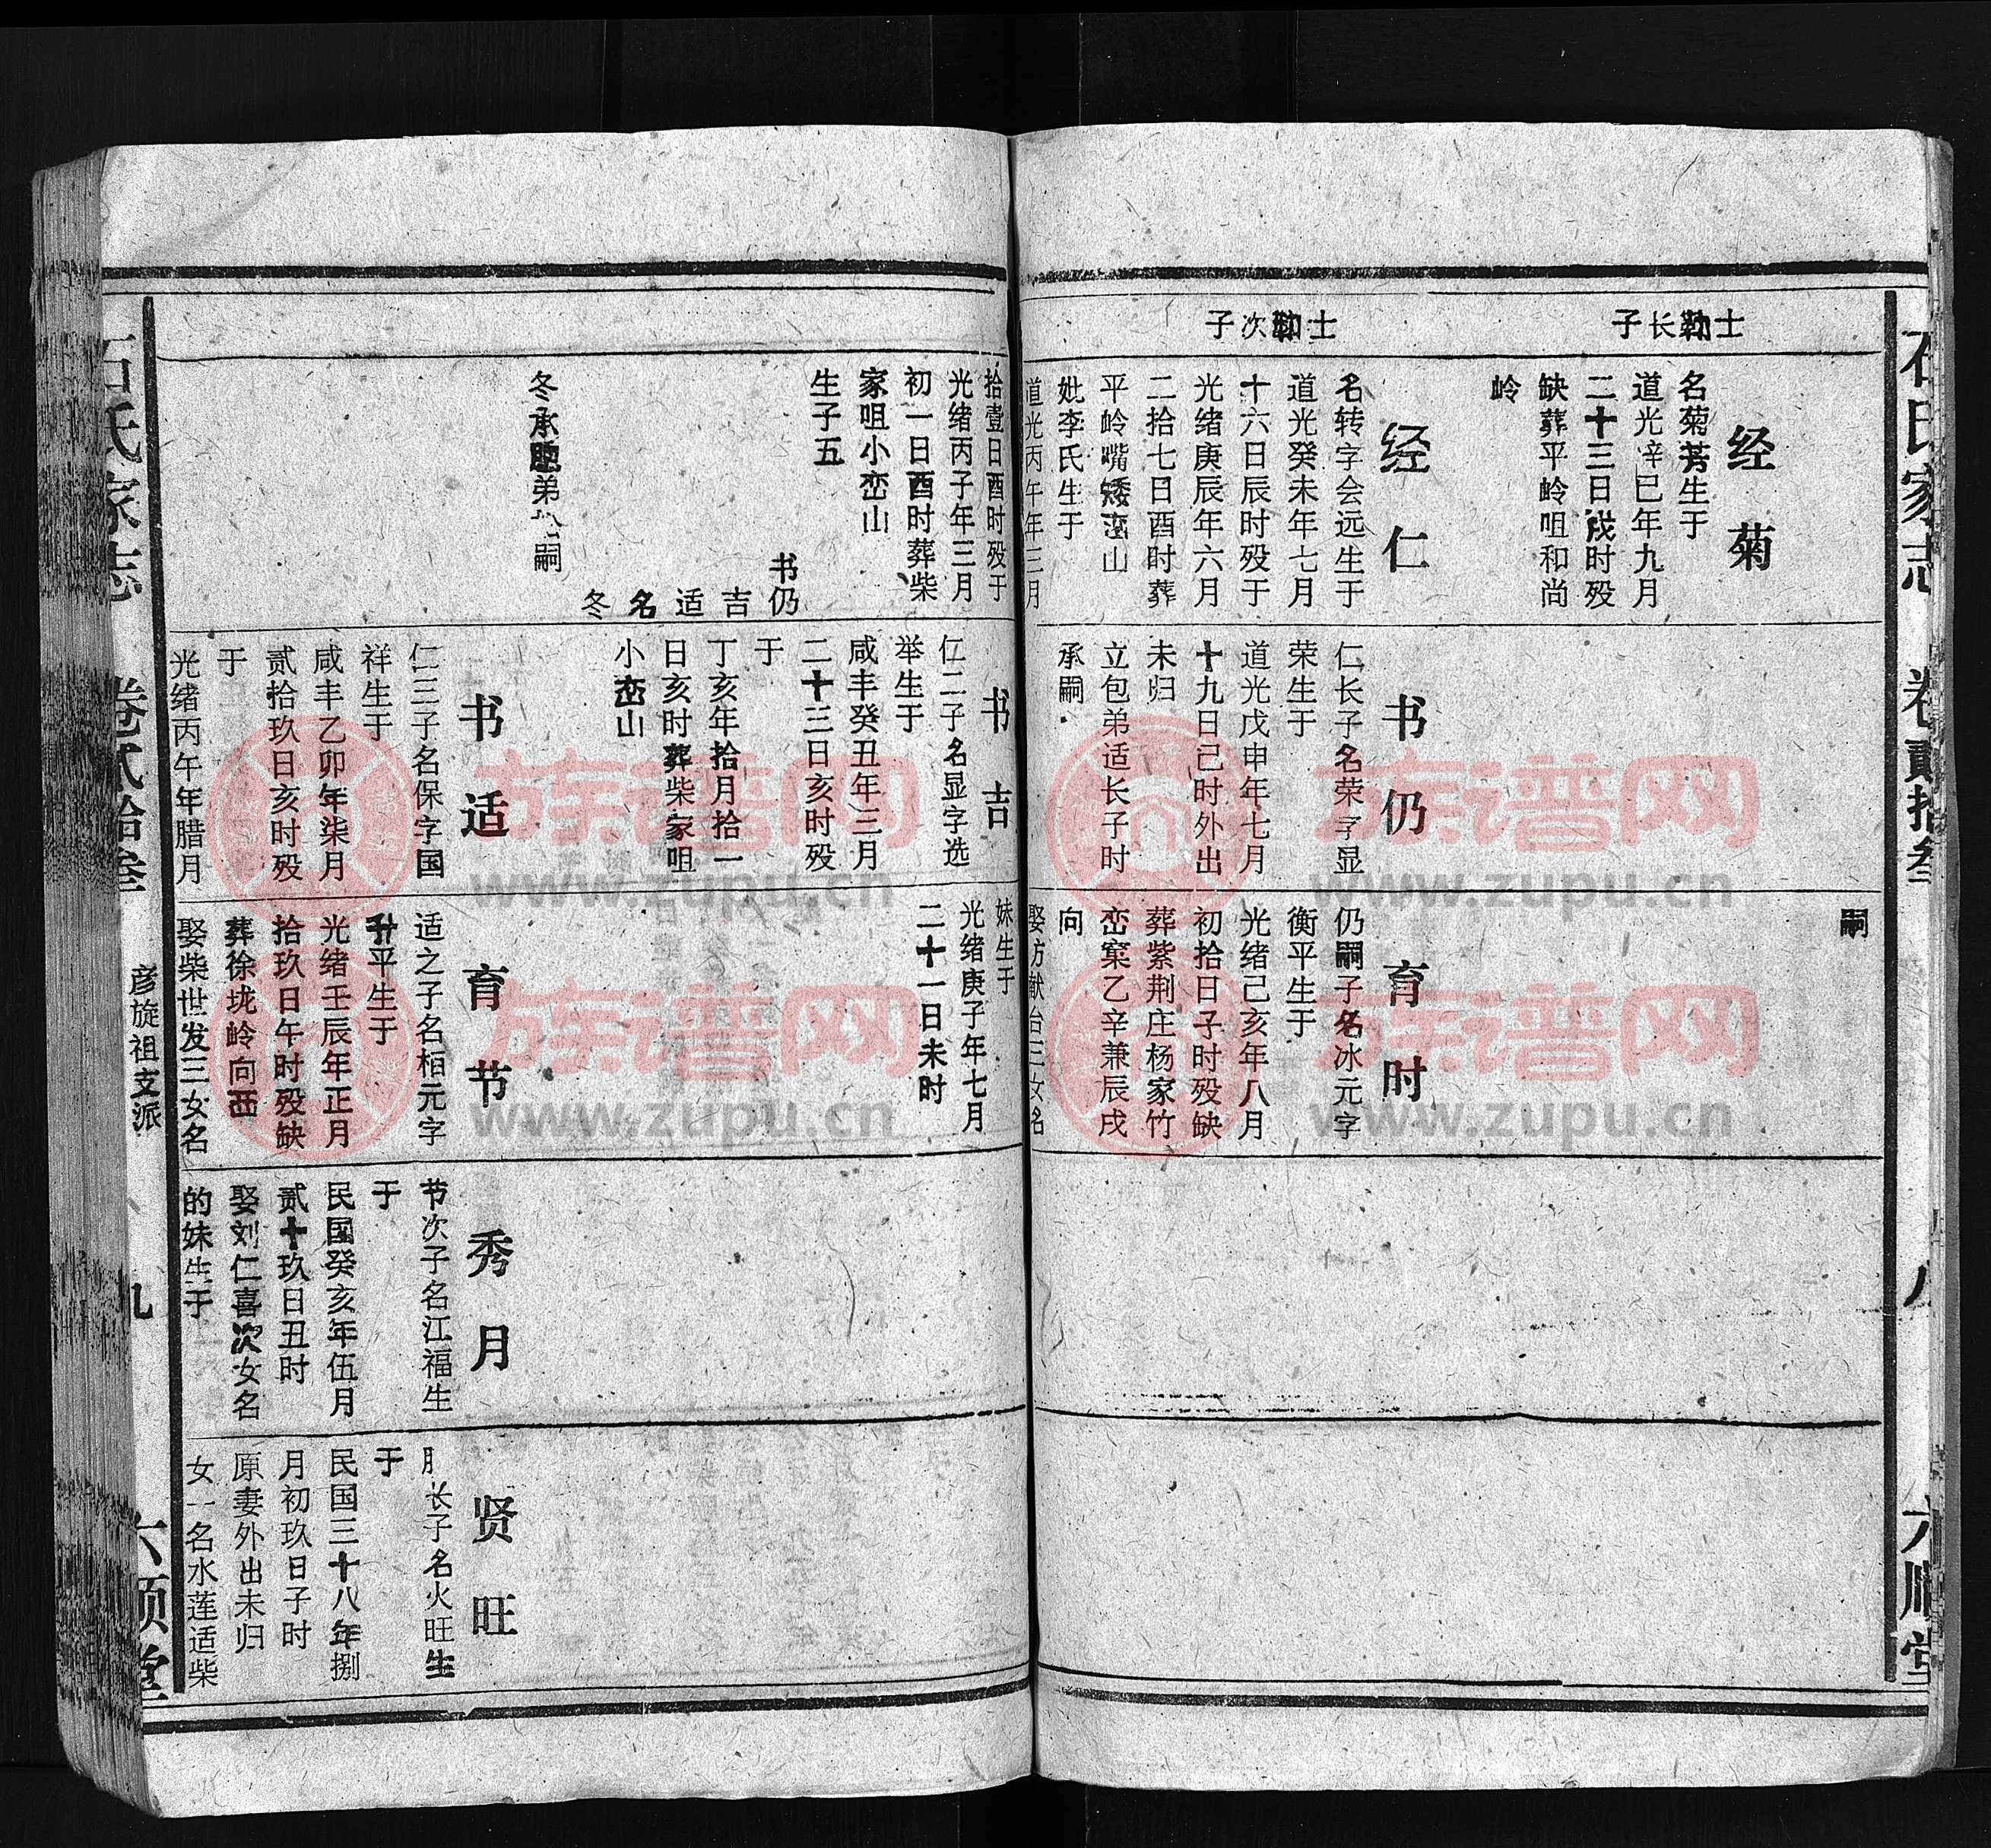 石氏家志
卷贰拾叁
八
六顺堂
士勷长子
经菊
名菊芳生于
道光辛巳年九月
二十三日戌时殁
缺葬平岭咀和尚
岭
士勷次子
经仁
名转字会远生于
道光癸未年七月
十六日辰时殁于
光绪庚辰年六月
二拾七日酉时葬
平岭嘴矮峦山
妣李氏生于
道光丙午年三月
书仍
仁长子名荣字显
荣生于
道光戊申年七月
十九日己时外出
未归
立包弟适长子时
承嗣
嗣
育时
仍嗣子名冰元字
衡平生于
光绪己亥年八月
初拾日子时殁缺
葬紫荆庄杨家竹
峦窠乙辛兼辰戌
向
娶方献台三女名
拾壹日酉时殁于
光绪丙子年三月
初一日酉时葬柴
家咀小峦山
生子五
书仍
吉
适
名
冬
冬承胞弟 嗣
书吉
仁二子名显字选
举生于
咸丰癸丑年三月
二十三日亥时殁
于
丁亥年拾月拾一
日亥时葬柴家咀
小峦山
书适
仁三子名保字国
祥生于
咸丰乙卯年柒月
贰拾玖日亥时殁
于
光绪丙午年腊月
妹生于
光绪庚子年七月
二十一日未时
育节
适之子名栢元字
升平生于
光绪壬辰年正月
拾玖日午时殁缺
葬徐垅岭向西
娶柴世发三女名
秀月
节次子名江福生
于
民国癸亥年伍月
贰十玖日丑时
娶刘仁喜次女名
的妹生于
贤旺
月长子名火旺生
于
民国三十八年捌
月初玖日子时
原妻外出未归
女一名水莲适柴
石氏家志
卷贰拾叁
彦旋祖支派
九
六顺堂
族谱网
www.zupu.cn
族谱网
www.zupu.cn
族谱网
www.zupu.cn
族谱网
www.zupu.cn